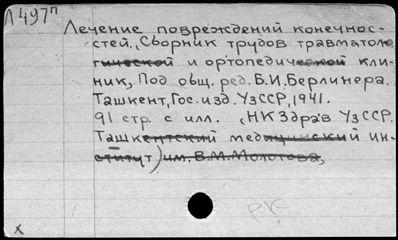 Л497п
Лечение повреждений конечнос-
стей, Сборник трудов травматоло
гической и ортопедической кли-
ник, Под общ. ред. В.И. Берлинера.
Ташкент, Гос. изд. УзССР, 1941.
91 стр. с илл. (НКЗдрав УзССР.
Ташкентский медицинский ин-
ститут) им. В.М. Молотова,
х
РК